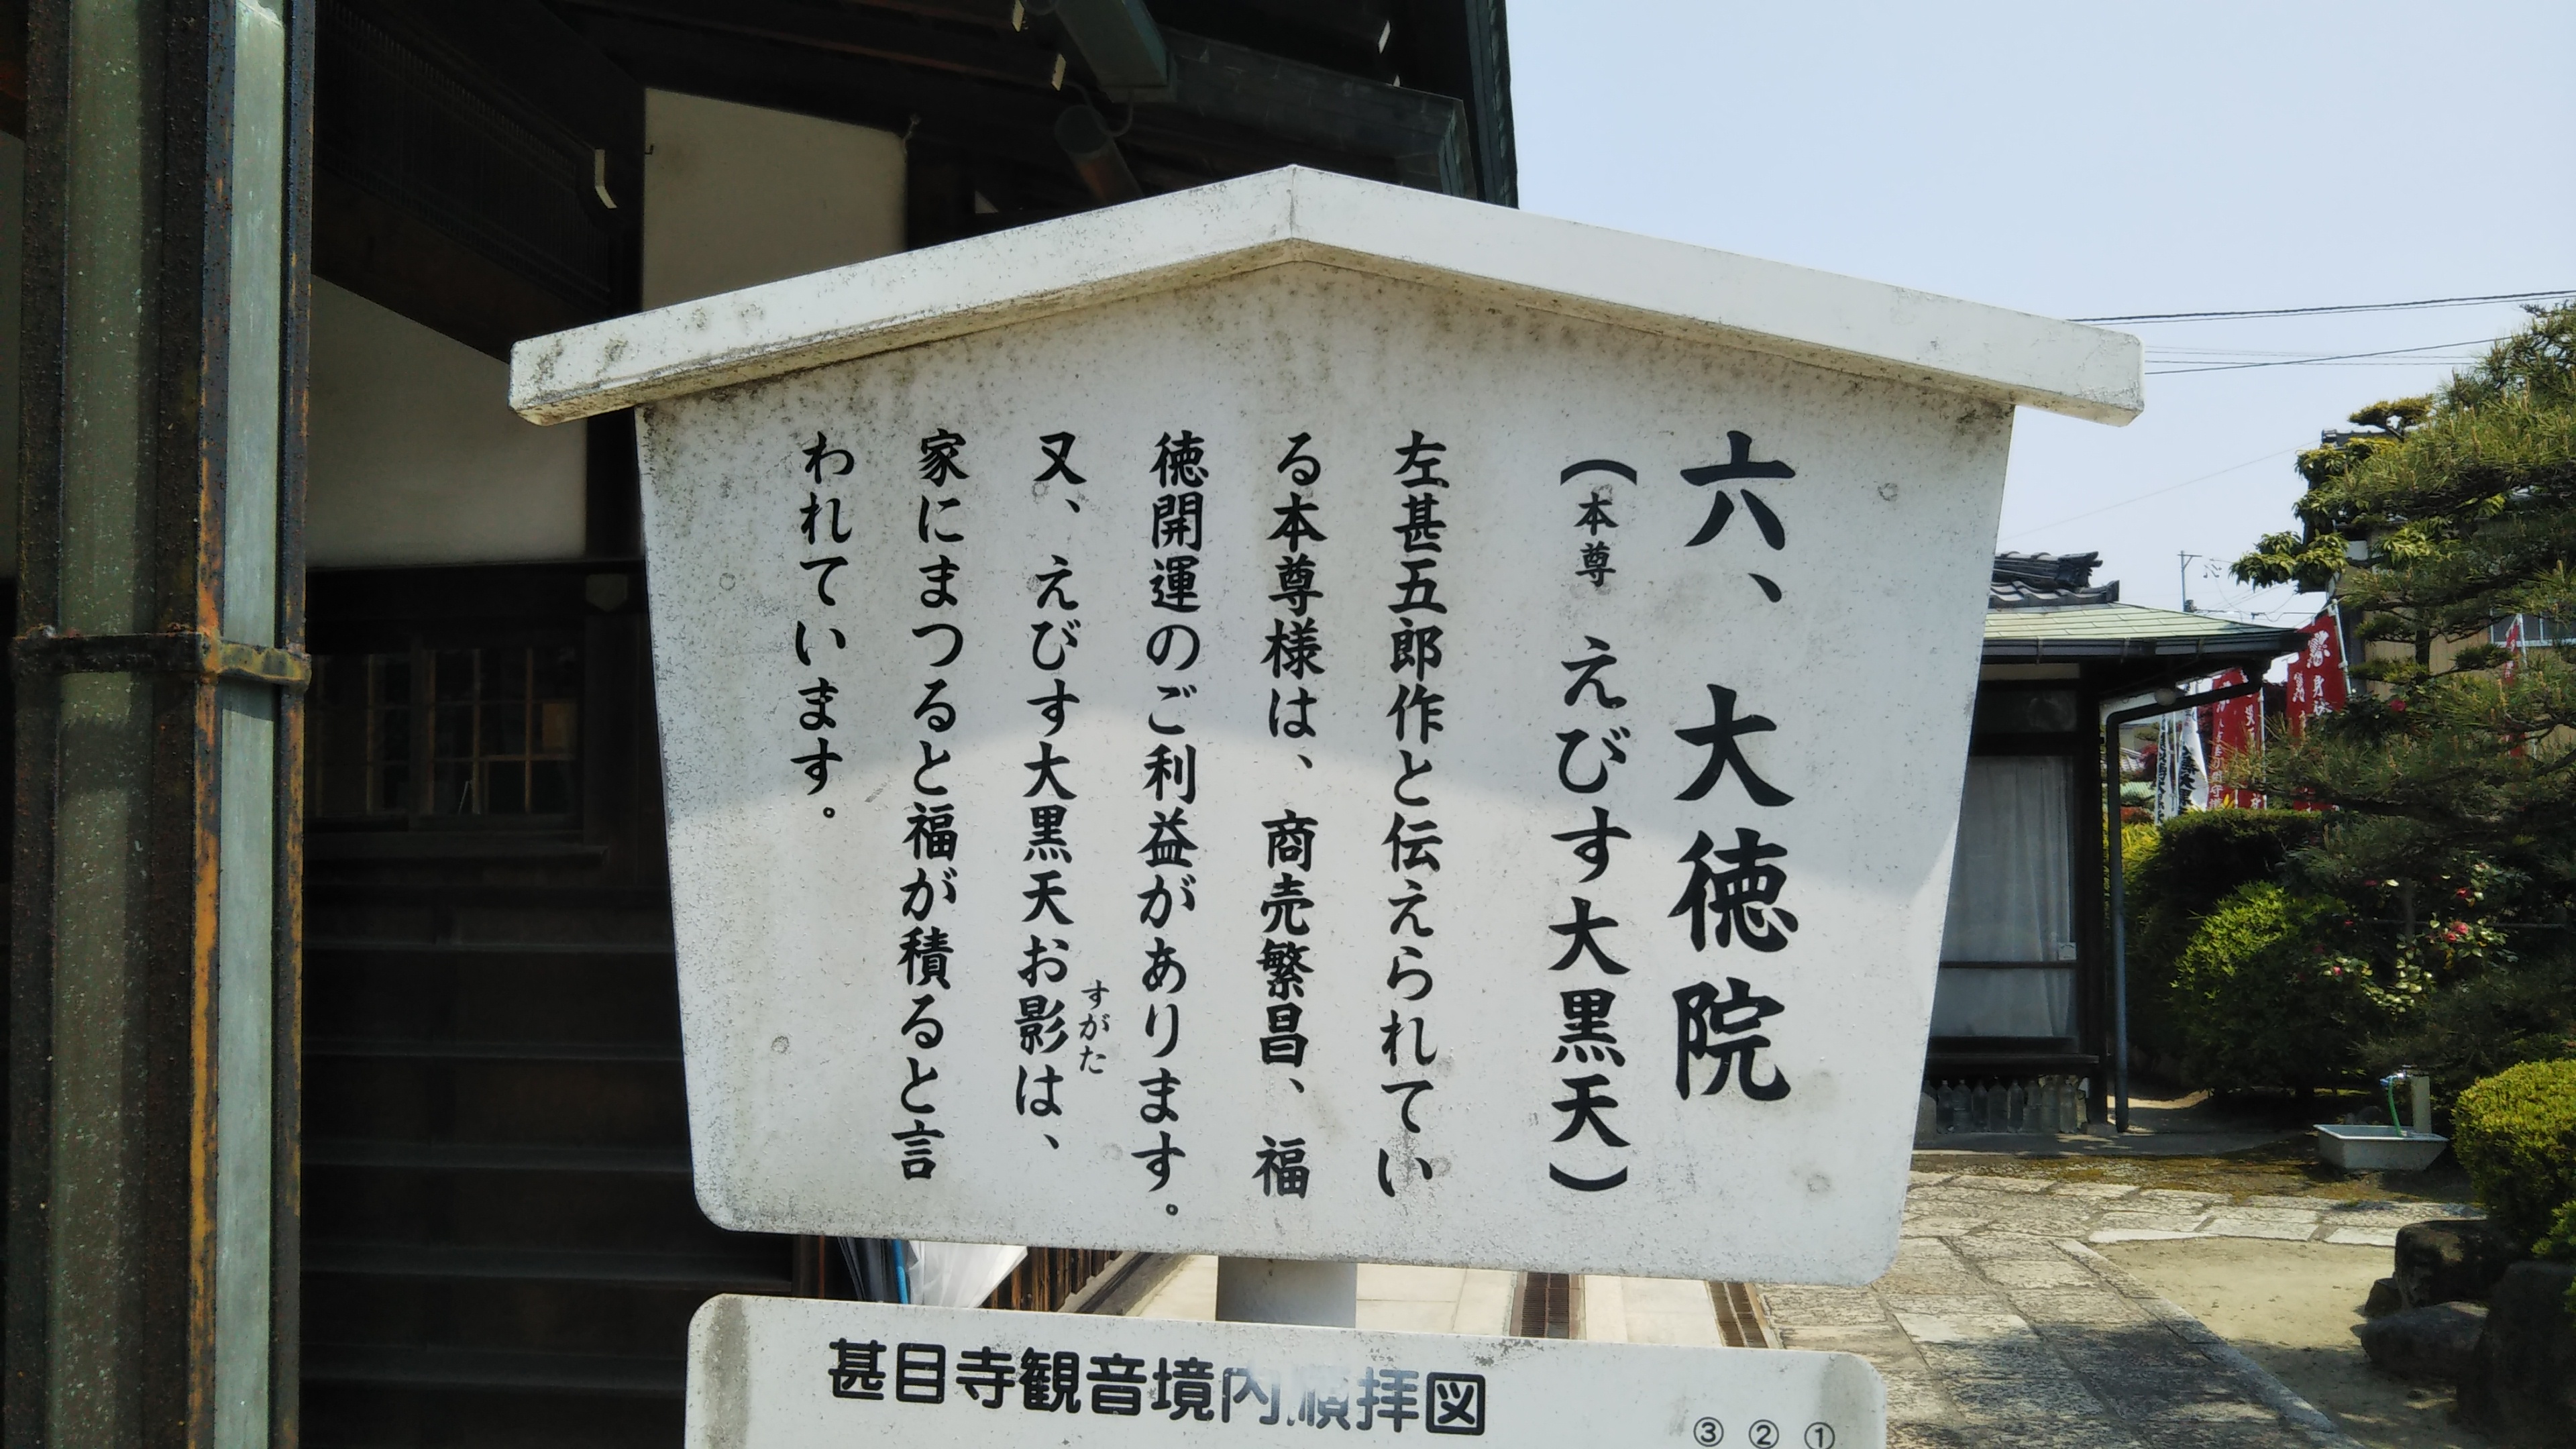 六、大徳院
（本尊 えびす大黒天）
左甚五郎作と伝えられてい
る本尊様は、商売繁昌、福
徳開運のご利益があります。
すがた
又、えびす大黒天お影は、
家にまつると福が積ると言
われています。
甚目寺観音境内 拝図
③ ② ①